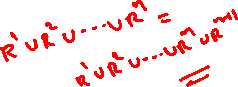 R¹ ∪ R² ∪ ⋯ ∪ Rⁿ =
R¹ ∪ R² ∪ ⋯ ∪ Rⁿ ∪ Rⁿ⁺¹